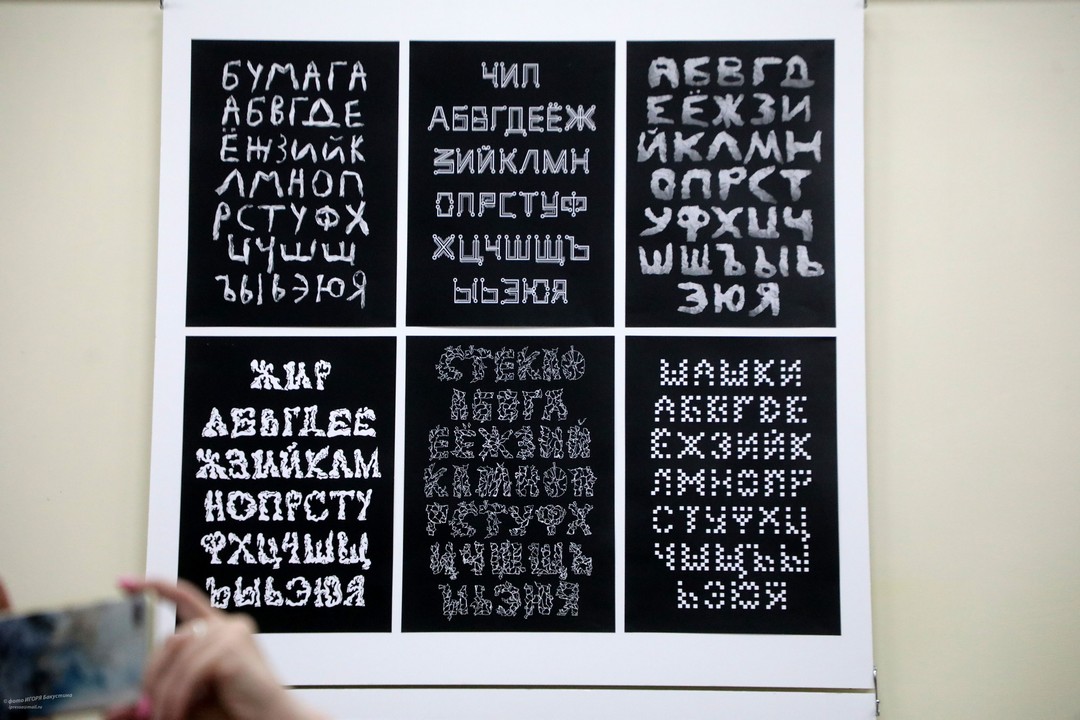 БУМАГА
АБВГДЕ
ЁЖЗИЙК
ЛМНОП
РСТУФХ
ЦЧШЩ
ЪЫЬЭЮЯ
ЧИП
АБВГДЕЁЖ
ЗИЙКЛМН
ОПРСТУФ
ХЦЧШЩЪ
ЫЬЭЮЯ
АБВГД
ЕЁЖЗИ
ЙКЛМН
ОПРСТ
УФХЦЧ
ШЩЪЫЬ
ЭЮЯ
ЖИР
АБВГДЕЁ
ЖЗИЙКЛМ
НОПРСТУ
ФХЦЧШЩ
ЪЫЬЭЮЯ
СТЕКЛО
АБВГД
ЕЁЖЗИЙ
КЛМНОП
РСТУФХ
ЦЧШЩЪ
ЫЬЭЮЯ
ШАШКИ
АБВГДЕ
ЁЖЗИЙК
ЛМНОПР
СТУФХЦ
ЧШЩЪЫ
ЬЭЮЯ
© фото ИГОРЯ Бакустина